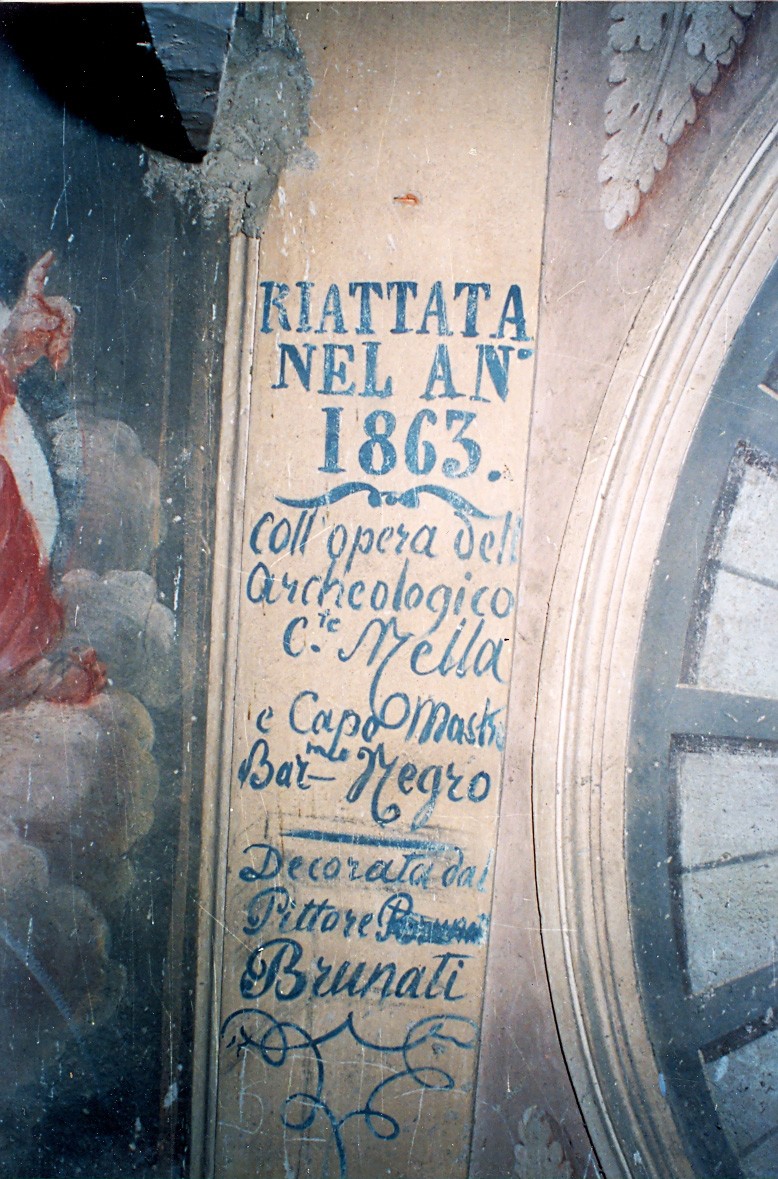 RIATTATA
NEL AN.°
1863.
Coll'opera dell
Archeologico
C.te Mella
e Capo Mastro
Bar.meo Negro
Decorata dal
Pittore
Brunati